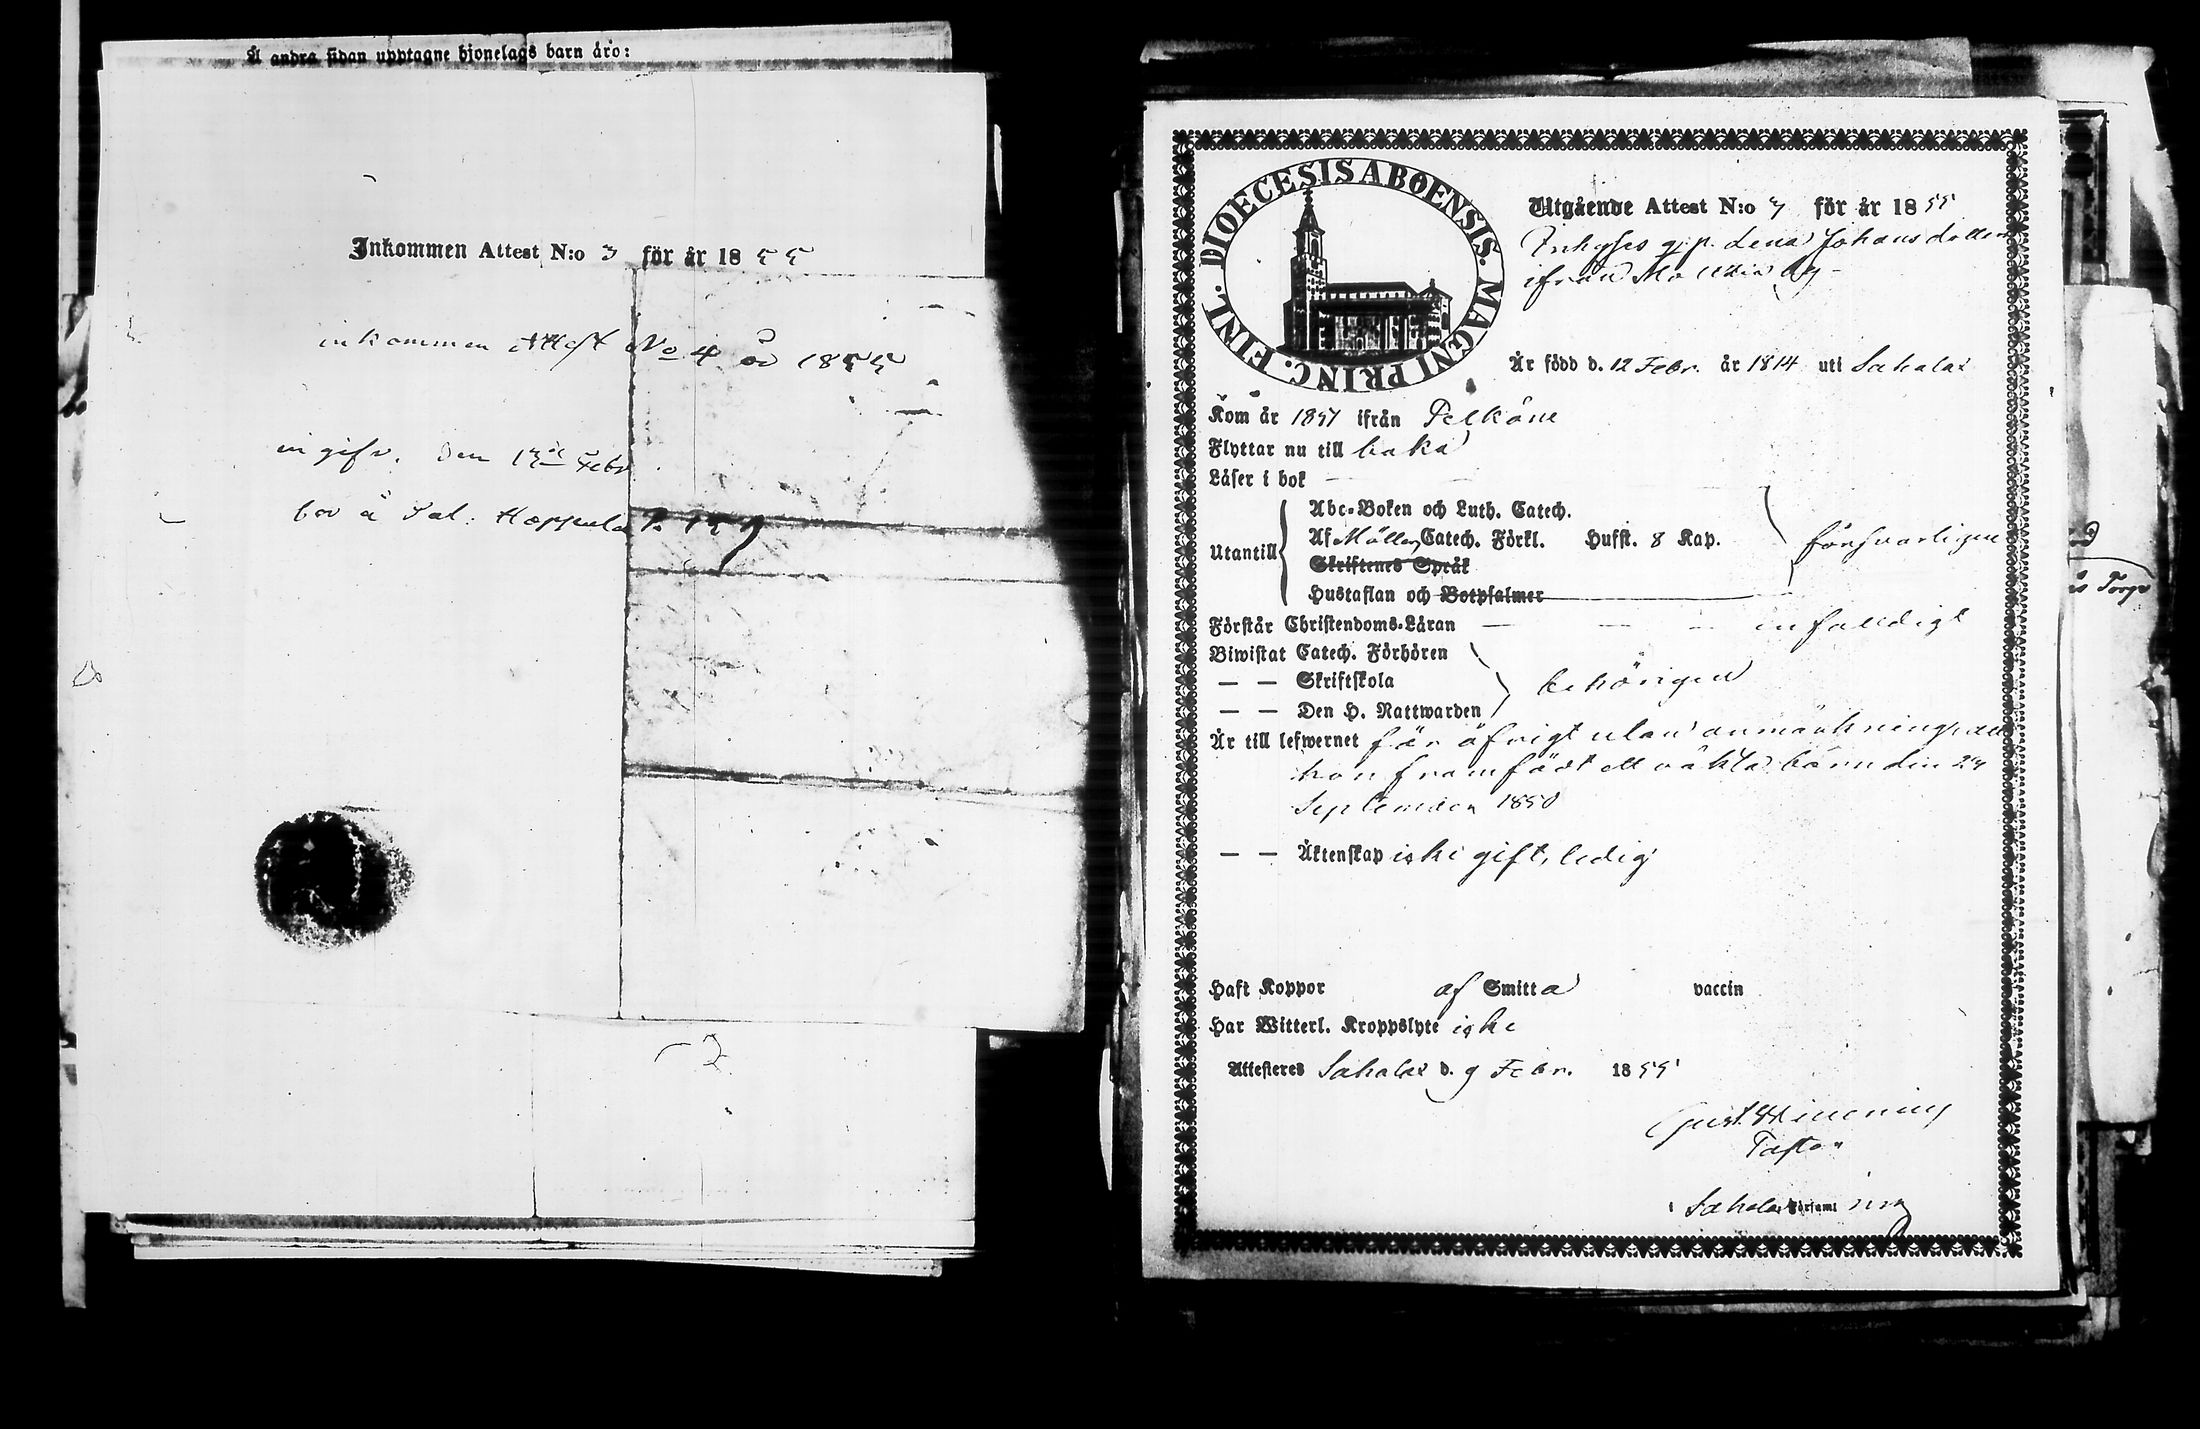 Å andra sidan upptagne hjonelags barn äro:
Inkommen Attest N:o 3 för år 1855
inkommen Attest No 4 år 1855
ingifv. den Febr
bor å Pal: Hoppula P.
DIOECESIS ABOENSIS. MAGNI PRINC. FINL.
Utgående Attest N:o 7 för år 1855
Inhyses q.p. Lena Johansdotter
ifrån by
Är född d. 12 Febr. år 1814 uti Sahalax
Kom år 1851 ifrån Pelkäne
Flyttar nu till baka
Läser i bok
Abc-Boken och Luth. Catech.
Utantill Af Möllers Catech. Förkl. Hufst. 8 Kap. försvarligen
Skriftenes Språk
Hustaflan och Botpsalmer
Förstår Christendoms-Läran enfalldigt
Biwistat Catech. Förhören
— — Skriftskola behörigen
— — Den H. Nattwarden
Är till lefwernet för öfrigt utan anmärkning, att
hon framfödt ett oäkta barn den 24
September 1850
— — Äktenskap icke gift, ledig
Haft Koppor af Smitta vaccin
Har Witterl. Kroppslyte icke
Attesteras Sahalax d. 9 Febr. 1855
Gust.
Pastor
i Sahalax Församling
Torp